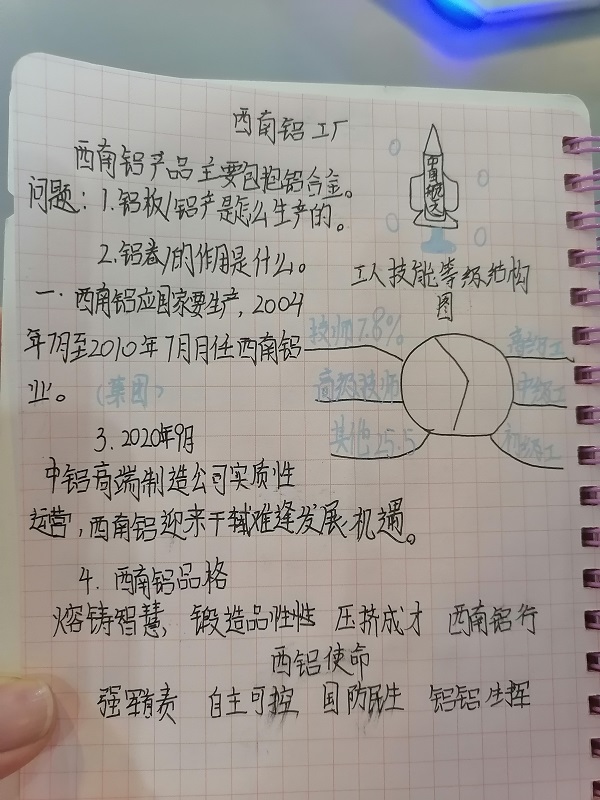 西南铝工厂
西南铝产品主要包抱铝合金。
问题：1.铝板/铝产是怎么生产的。
2.铝卷/的作用是什么。
一.西南铝应国家要生产，2004
年7月至2010年7月月任西南铝
业。（集团）
3.2020年9月
中铝高端制造公司实质性
运营，西南铝迎来千载难逢发展机遇。
4.西南铝品格
熔铸智慧，锻造品性 压挤成才 西南铝行
西铝使命
强军有责 自主可控 国防民生 铝铝生挥
中国航天
工人技能等级结构
图
技师7.8%
高级技师
其他25.5
高级工
中级工
初级工